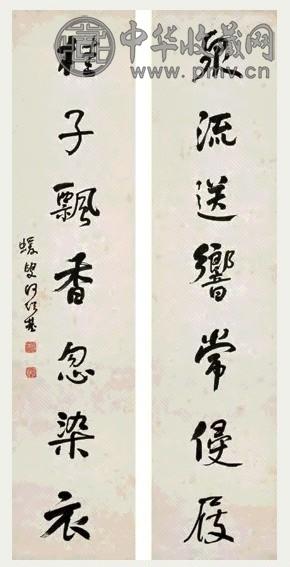 中华收藏网
www.pmv.cn
泉流送響常侵屐
桂子飄香忽染衣
蝯叟何紹基